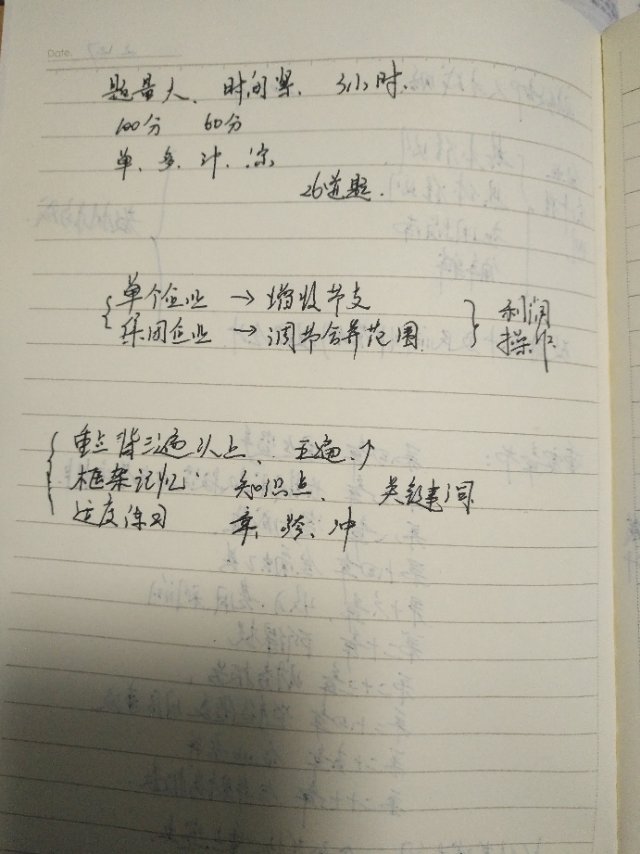 Date.
题量大、时间紧、3小时.
100分 60分
单、多、计、综
26道题.
单个企业 → 增收节支
集团企业 → 调节合并范围
利润
操作
重点背三遍以上、五遍.↑
框架记忆 知识点、 关键词
适度练习 章、跨、冲